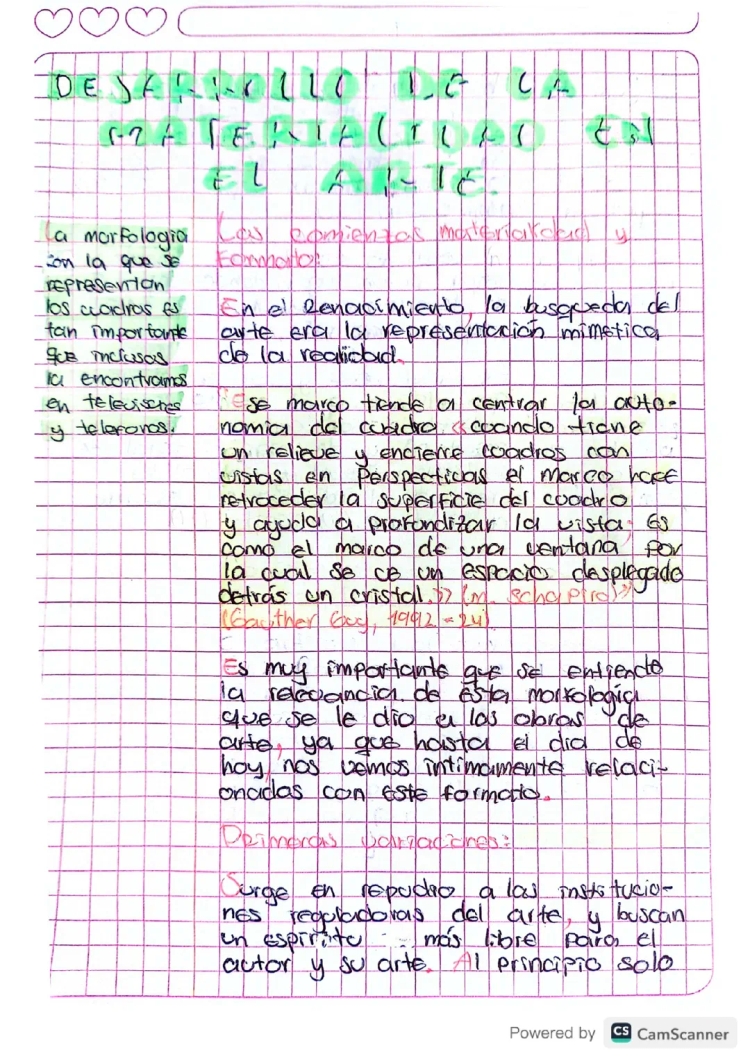 DESARROLLO DE LA
MATERIALIDAD EN
EL ARTE.
La morfologia
con la que se
representan
los cuadros es
tan importante
que inclusos
la encontramos
en televisores
y telefonos.
Los comienzos materialidad y
Formato:
En el Renacimiento, la busqueda del
arte era la representación mimetica
de la realidad.
Ese marco tiende a centrar la auto-
nomia del cuadro «cuando tiene
un relieve y encierre cuadros con
vistas en Perspectivas el marco hace
retroceder la superficie del cuadro
y ayuda a profundizar la vista. Es
como el marco de una ventana por
la cual se ve un espacio desplegado
detrás un cristal.» (M. Schapiro)»
(Gauther Guy, 1992 = 24)
Es muy importante que se entienda
la relevancia de ésta morfologia
que se le dio a las obras de
arte, ya que hasta el dia de
hoy, nos vemos intimamente relaci-
onadas con este formato.
Primeras variaciones:
Surge en repudio a las institucio-
nes reguladoras del arte, y buscan
un espiritu más libre para el
autor y su arte. Al principio solo
Powered by CS CamScanner